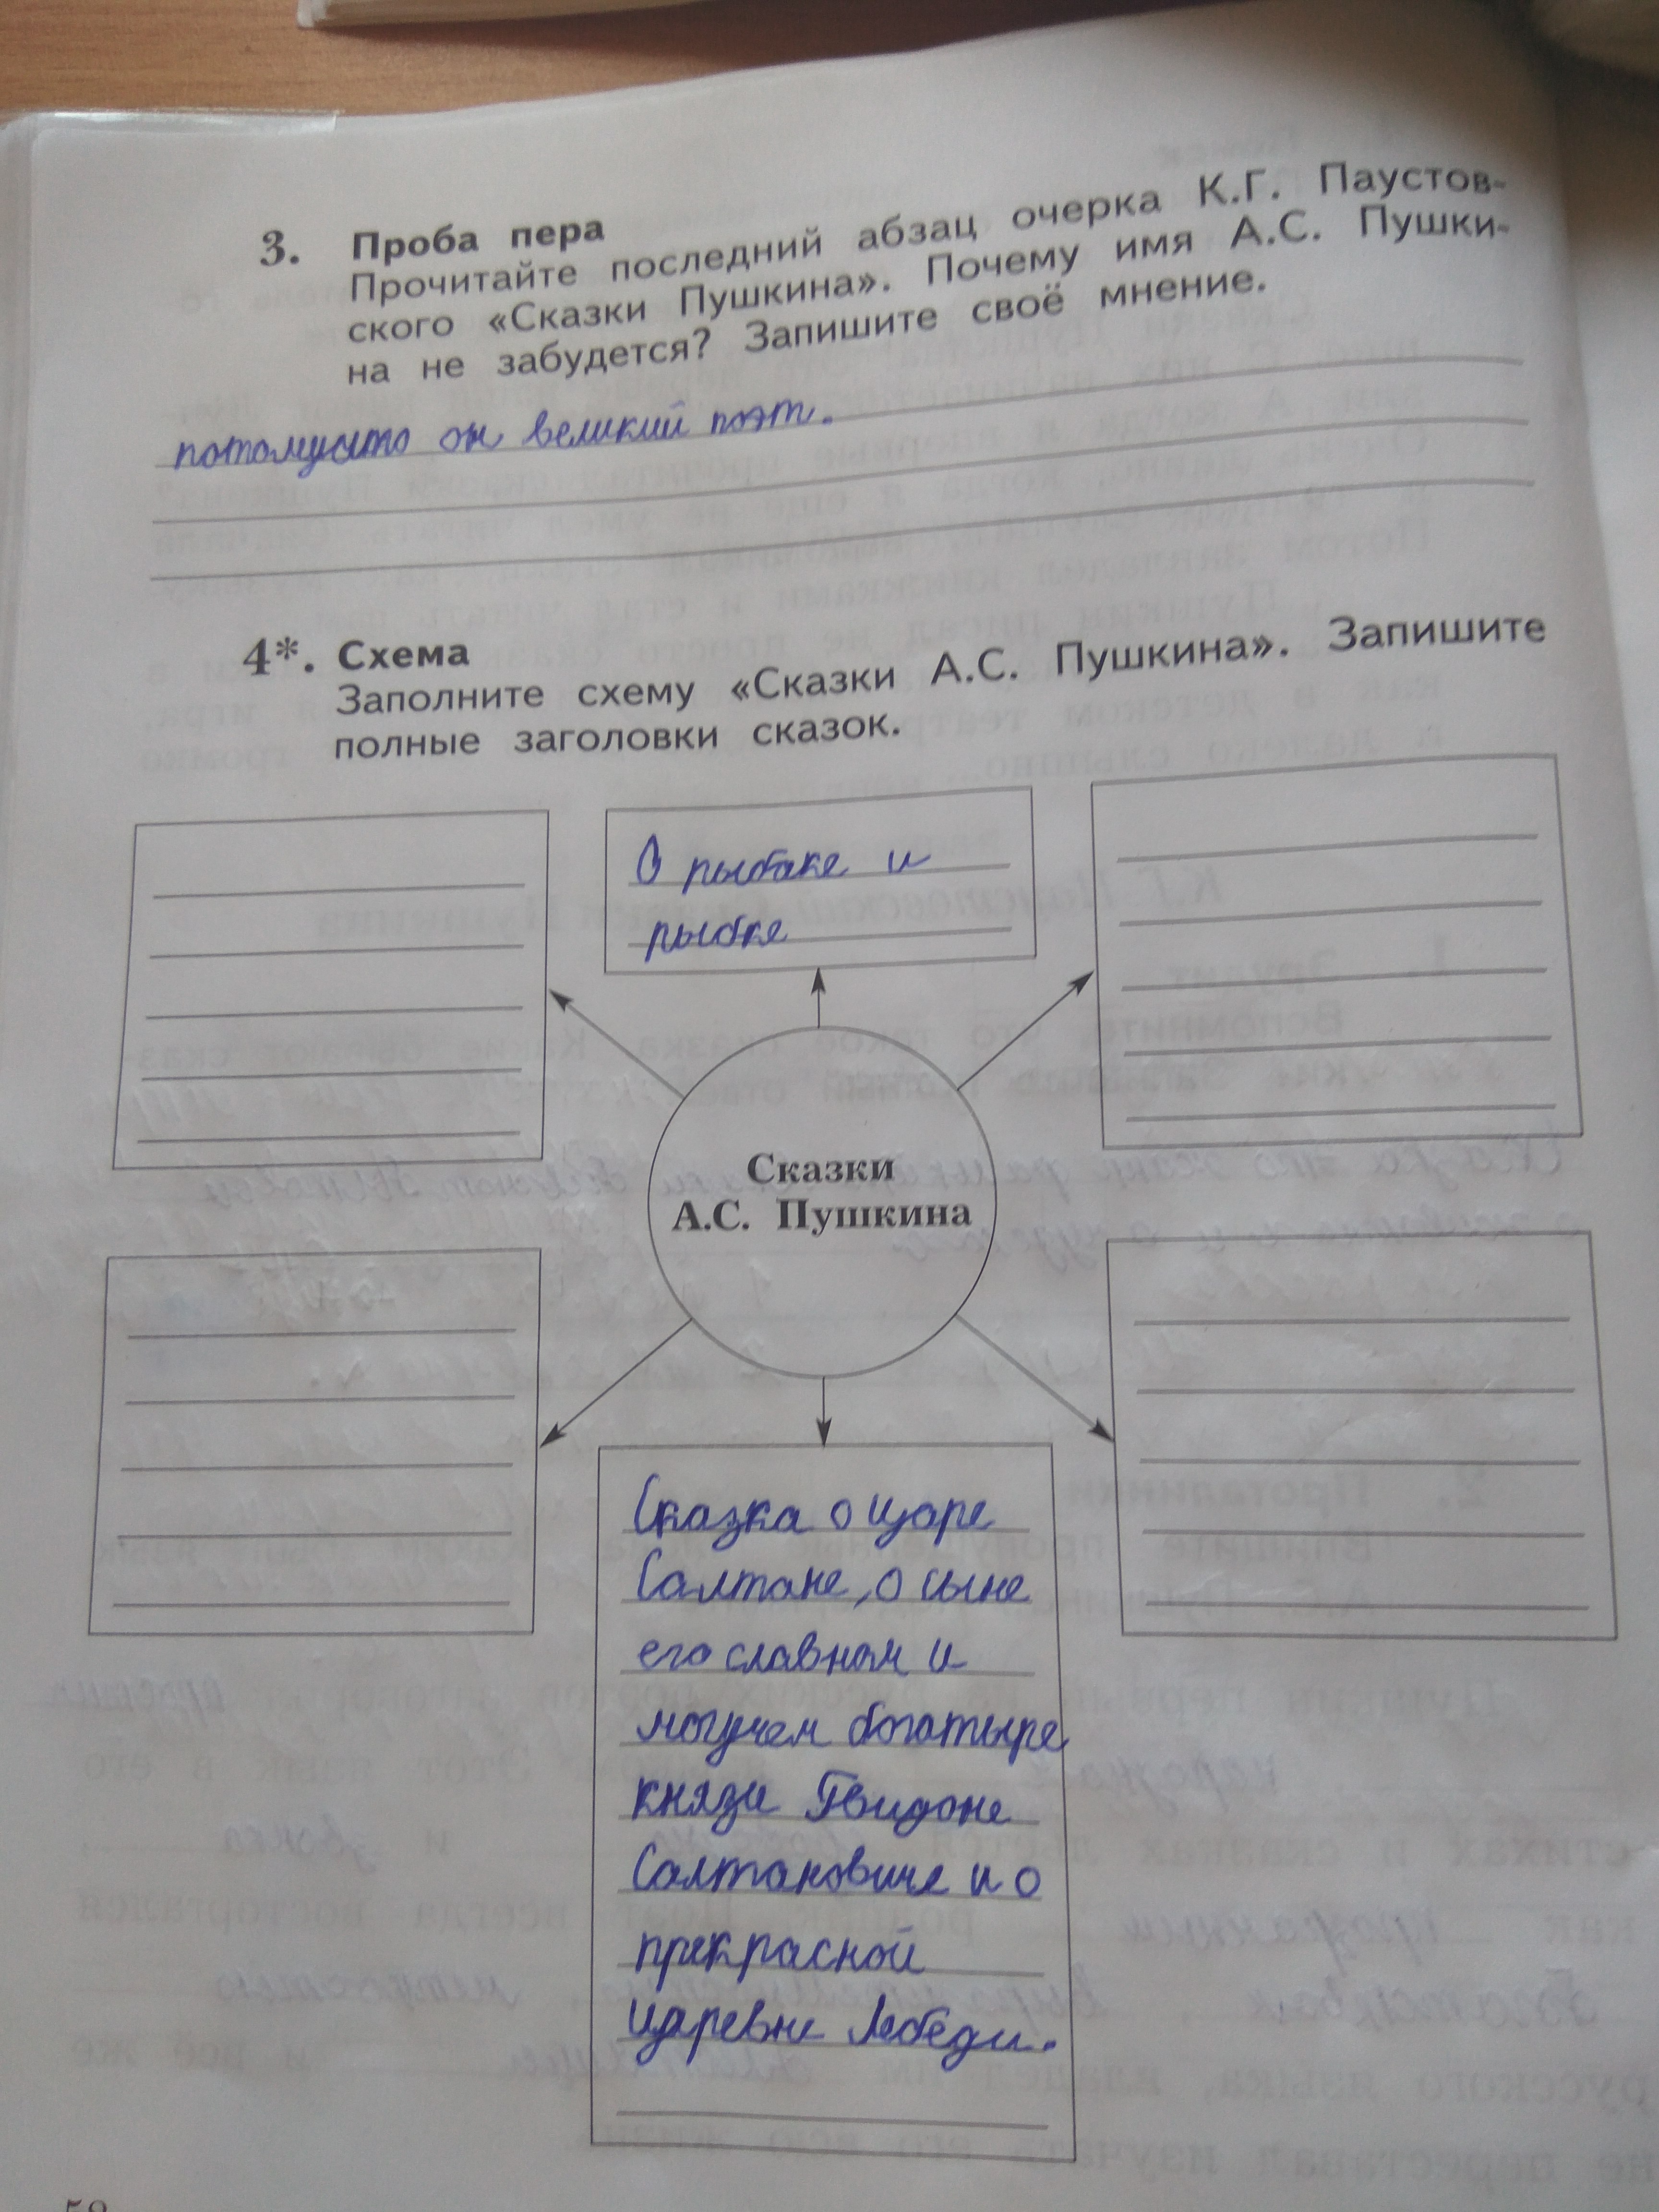 3. Проба пера
Прочитайте последний абзац очерка К.Г. Паустов-
ского «Сказки Пушкина». Почему имя А.С. Пушки-
на не забудется? Запишите своё мнение.
потомучто он великий поэт.
4*. Схема
Заполните схему «Сказки А.С. Пушкина». Запишите
полные заголовки сказок.
О рыбаке и
рыбке
Сказки
А.С. Пушкина
Сказка о царе
Салтане, о сыне
его славном и
могучем богатыре
князе Гвидоне
Салтановиче и о
прекрасной
царевне Лебеди.